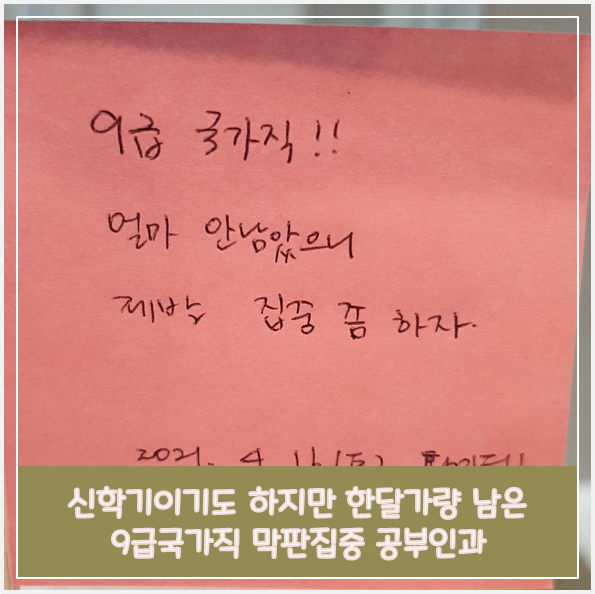 9급 국가직!!
얼마 안남았으니
제발 집중 좀 하자.
2021. 4.
신학기이기도 하지만 한달가량 남은
9급국가직 막판집중 공부인과